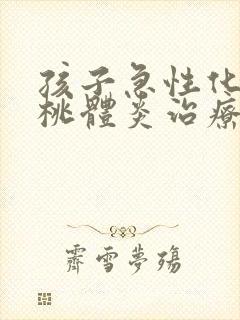 孩子急性化
桃體炎治療
霽雪夢殤